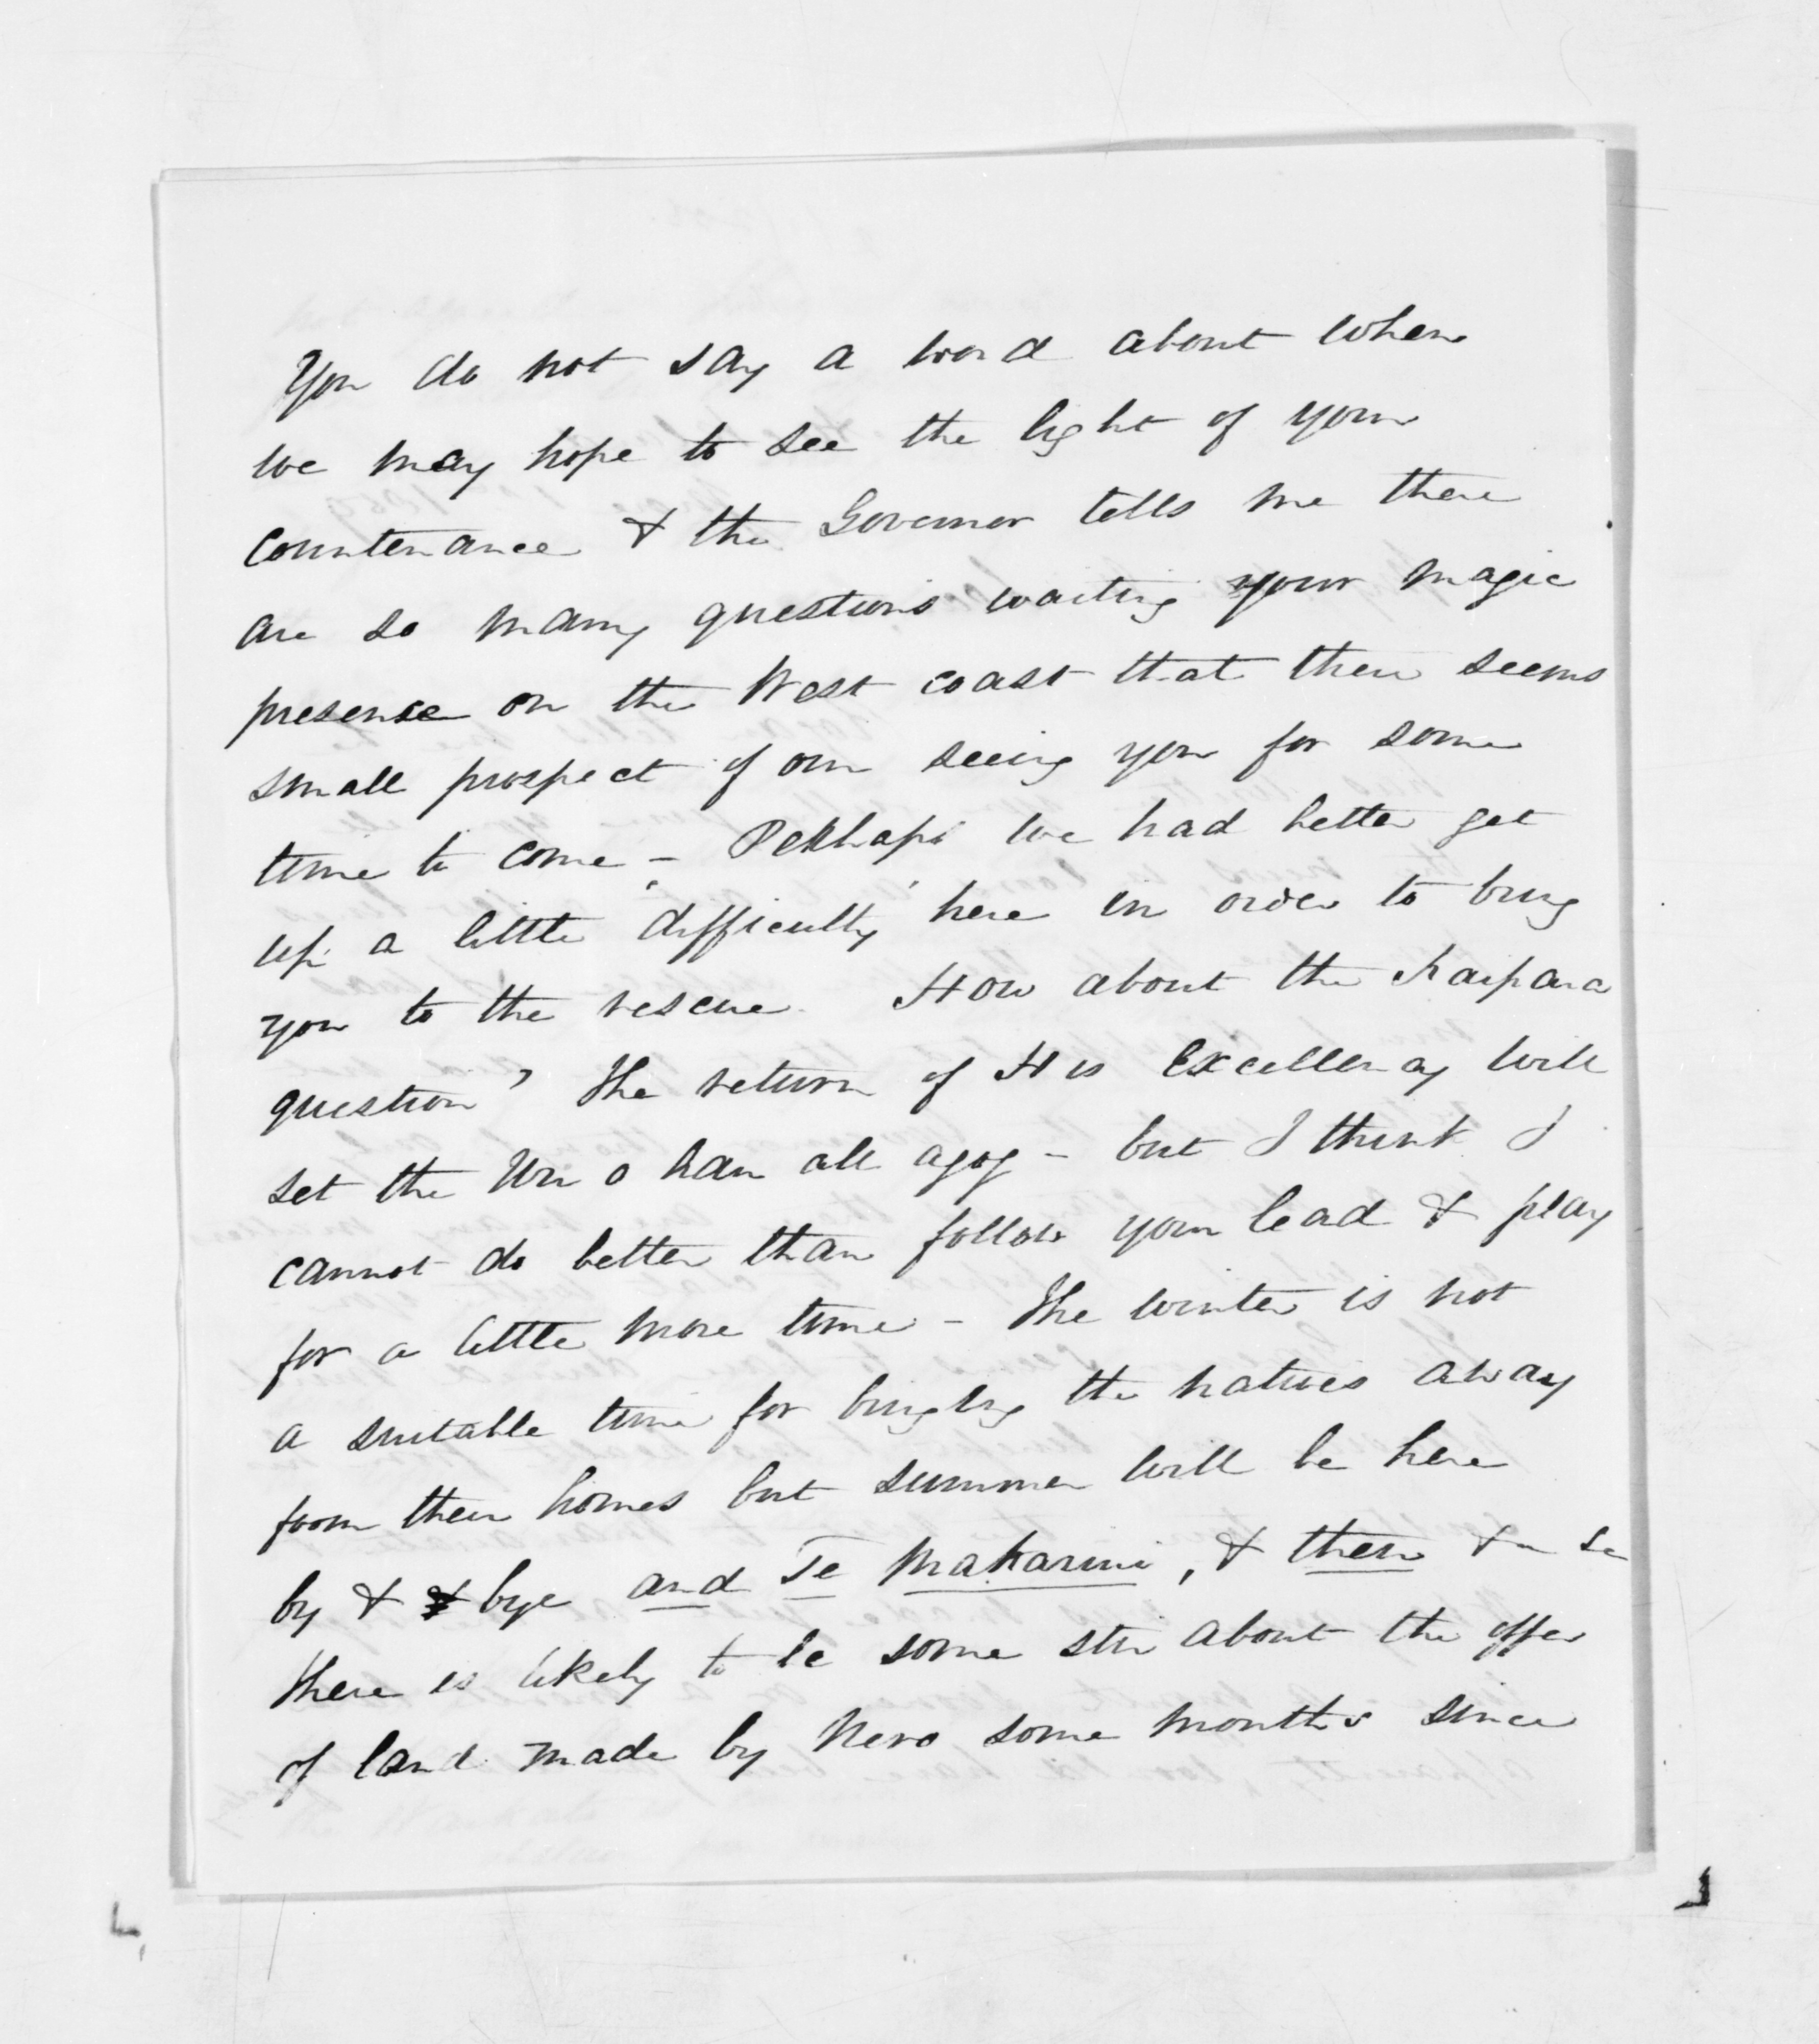 You do not say a word about when
we may hope to see the light of your
countenance & the Governor tells me there
are so many questions waiting your magic
presence on the West coast that there seems
small prospect of our seeing you for some
time to come - Perhaps we had better get
up a little 'difficulty' here in order to bring
you to the rescue. How about the Kaipara
question? The return of His Excellency will
set the Uri o hau all agog - but I think I
cannot do better than follow your lead & play
for a little more time - The winter is not
a suitable time for bringing the natives away
from their homes but summer will be here
by & bye and Te Makarini, & then &c &c
There is likely to be some stir about the offer
of land made by Nero some months since